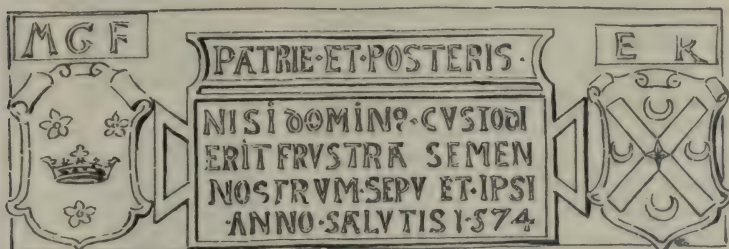 MGF
PATRIE·ET·POSTERIS·
E K
NISI DOMIN9·CVSTODI
ERIT FRVSTRA SEMEN
NOSTRVM·SEPV ET·IPSI
·ANNO·SALVTIS 1·574